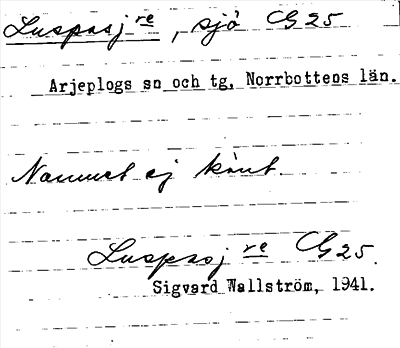 Luspasj re, sjö CG 25
Arjeplogs sn och tg, Norrbottens län.
Namnet ej känt.
Luspasj re CG 25.
Sigvard Wallström, 1941.